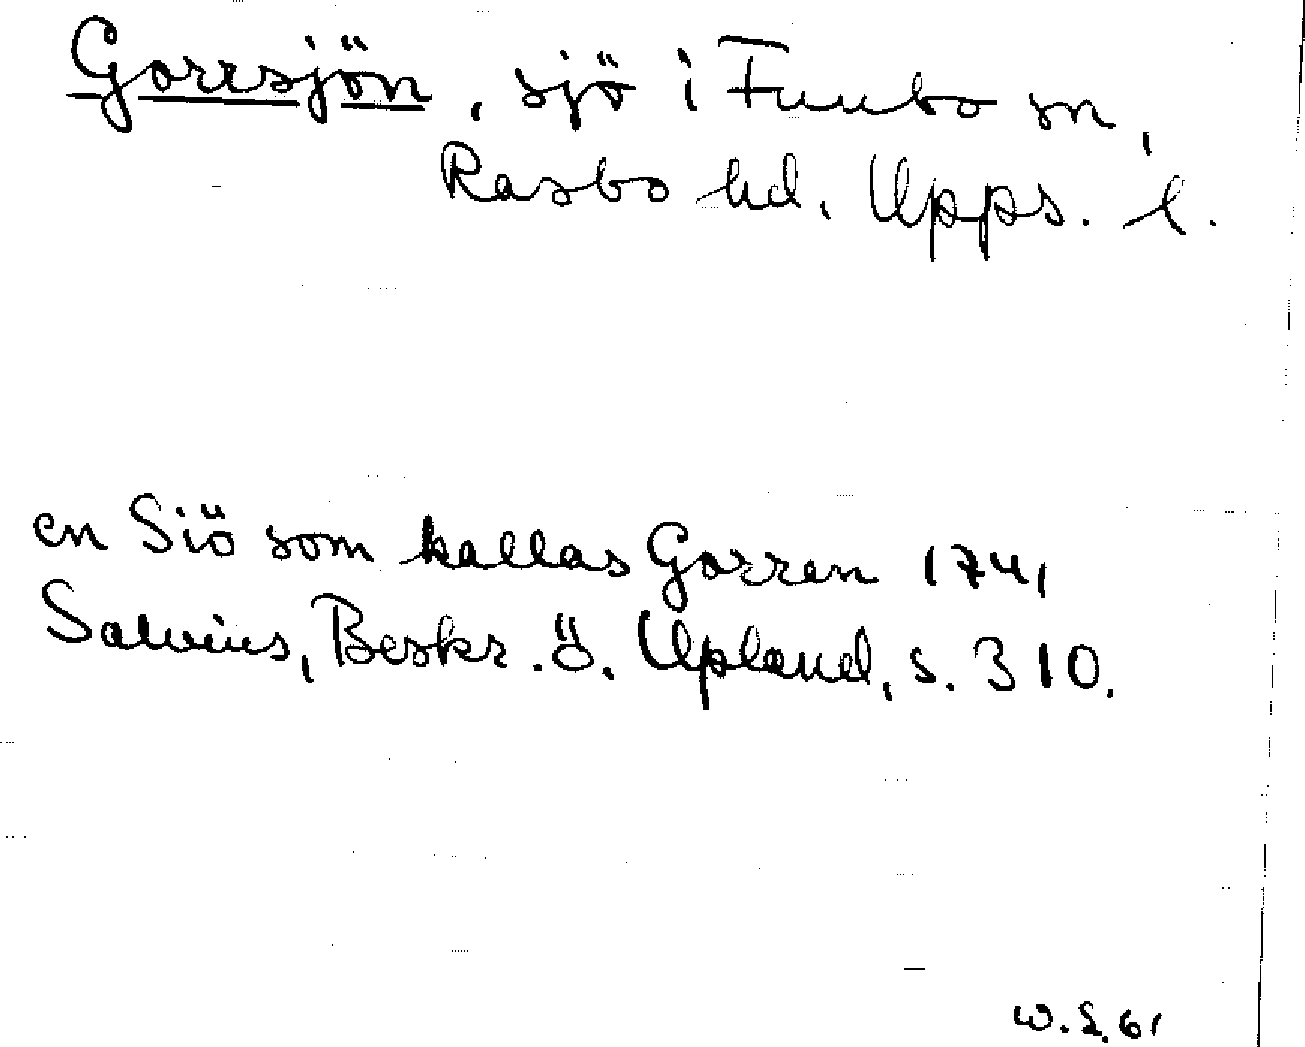 Gorrsjön, sjö i Funbo sn,
Rasbo hd. Upps. l.
en Siö som kallas Gorren 1741
Salvius, Beskr. ö. Upland, s. 310.
W.S. 61